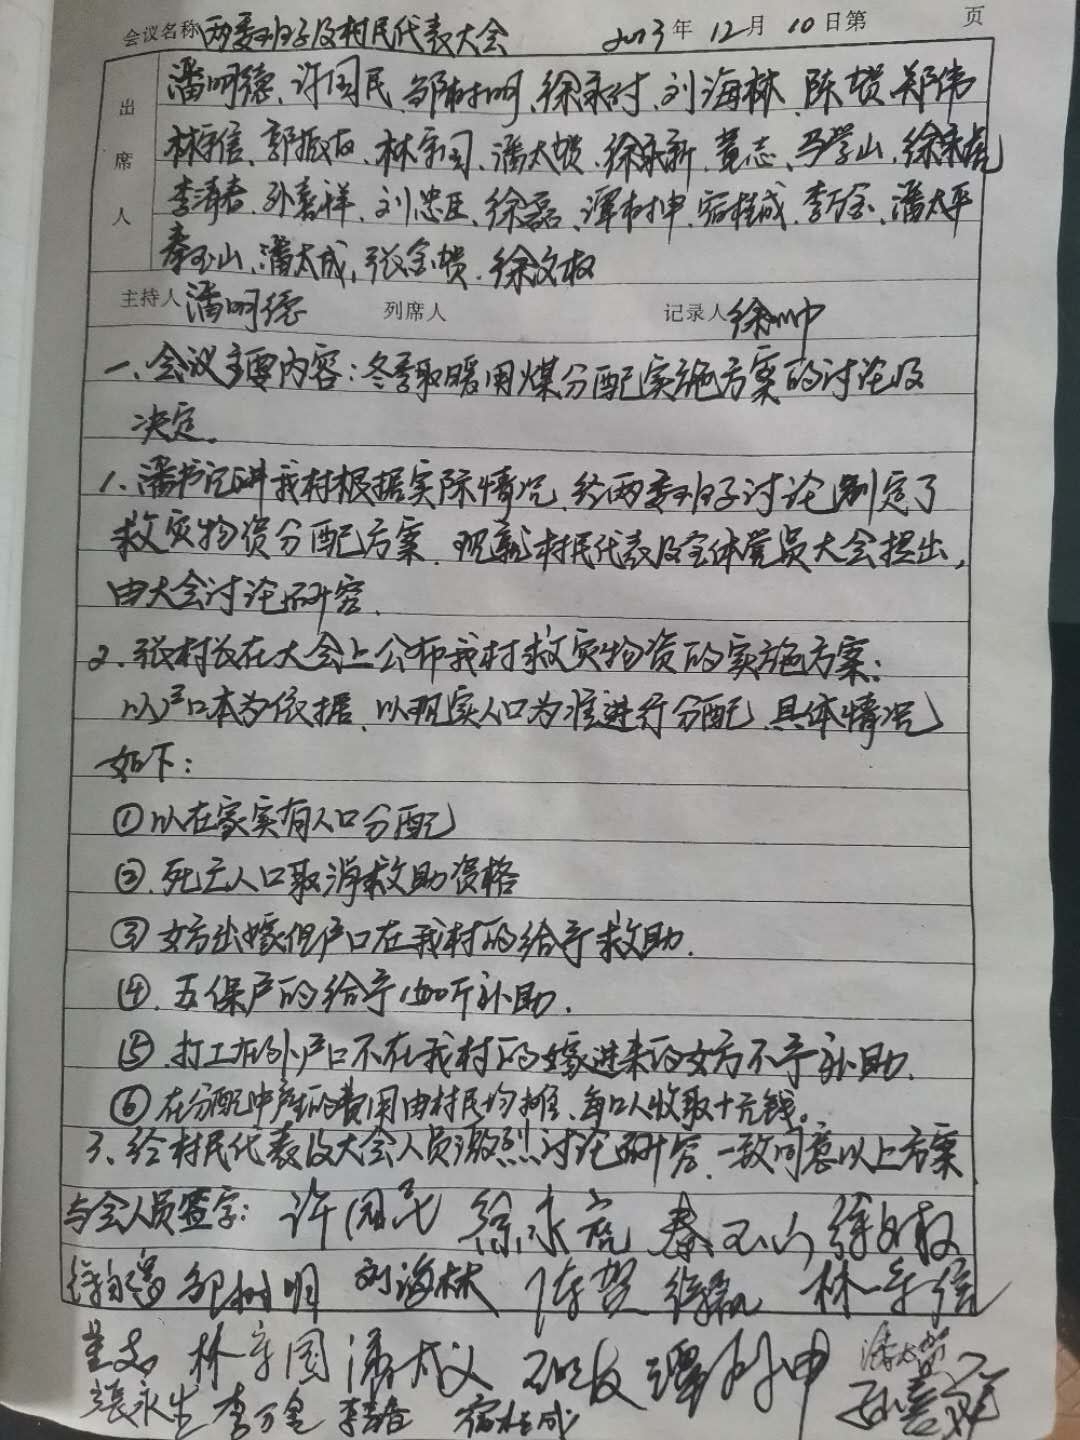 会议名称 两委班子及村民代表大会 2013年12月10日第 页
出席人 潘明德、许国民、邹树明、徐永财、刘海林、陈贺、郑伟
林守信、郭振友、林守国、潘太贺、徐永新、黄志、马学山、徐永虎
李清春、孙喜祥、刘忠臣、徐磊、谭树申、宿桂成、李万金、潘太平
秦玉山、潘太成、张金贺、徐文权
主持人 潘明德 列席人 记录人 徐帅
一、会议主要内容：冬季取暖用煤分配实施方案的讨论及
决定。
1、潘书记讲我村根据实际情况，经两委班子讨论制定了
救灾物资分配方案，现就村民代表及全体党员大会提出，
由大会讨论研究。
2、张村长在大会上公布我村救灾物资的实施方案：
以户口本为依据，以现实人口为准进行分配，具体情况
如下：
①以在家实有人口分配
②、死亡人口取消救助资格
③女方出嫁但户口在我村的给予救助.
④、五保户的给予1000斤补助.
⑤、打工在外户口不在我村的嫁进来的女方不予补助.
⑥在分配中产生的费用由村民均摊、每口人收取十元钱。
3、经村民代表及大会人员激烈讨论研究，一致同意以上方案
与会人员签字：许国民 徐永虎 秦玉山 徐文权
邹树明 刘海林 陈贺 徐磊 林守信
黄志 林守国 潘太义 谭树申 潘太贺
张永生 李万金 李清春 宿桂成 孙喜祥